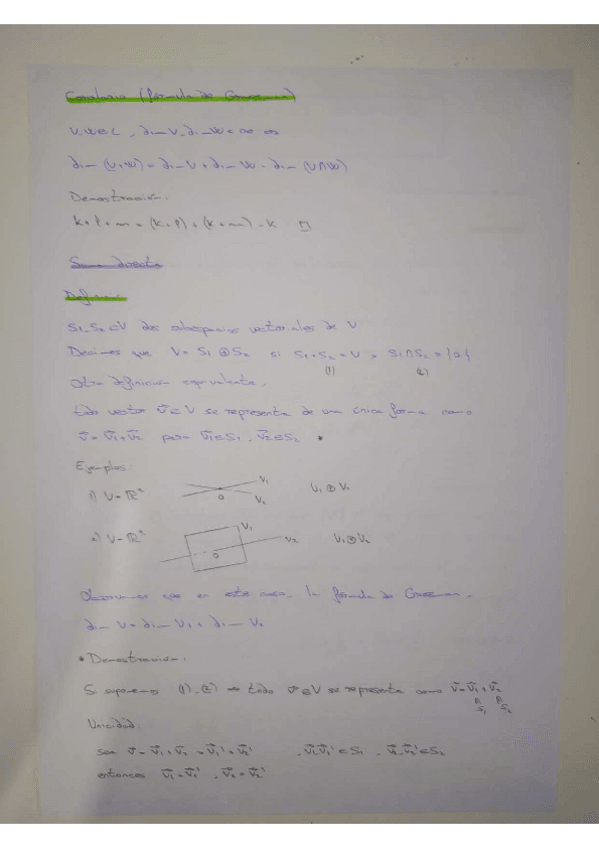 Corolario (fórmula de Grassmann)
V, W ⊂ L, dim V, dim W < ∞ ⇒
dim (V+W) = dim V + dim W - dim (V∩W)
Demostración:
k+l+m = (k+l) + (k+m) - k □
Suma directa
Definición:
S₁, S₂ ⊂ V dos subespacios vectoriales de V
Decimos que V = S₁ ⊕ S₂ si S₁+S₂ = V y S₁∩S₂ = {0}
(1) (2)
Otra definición equivalente.
todo vector v⃗ ∈ V se representa de una única forma como
v⃗ = v⃗₁ + v⃗₂ para v⃗₁ ∈ S₁, v⃗₂ ∈ S₂ *
Ejemplos:
1) V = ℝ² V₁ V₂ 0 V₁ ⊕ V₂
2) V = V₁ V₂ 0 V₁ ⊕ V₂
Observemos que en este caso, la fórmula de Grassmann.
dim V = dim V₁ + dim V₂
* Demostración:
Si suponemos (1), (2) ⇒ todo v⃗ ∈ V se representa como v⃗ = v⃗₁ + v⃗₂
S₁ S₂
Unicidad:
sea v⃗ = v⃗₁ + v⃗₂ = v⃗₁' + v⃗₂' , v⃗₁, v⃗₁' ∈ S₁ , v⃗₂, v⃗₂' ∈ S₂
entonces v⃗₁ = v⃗₁' , v⃗₂ = v⃗₂'